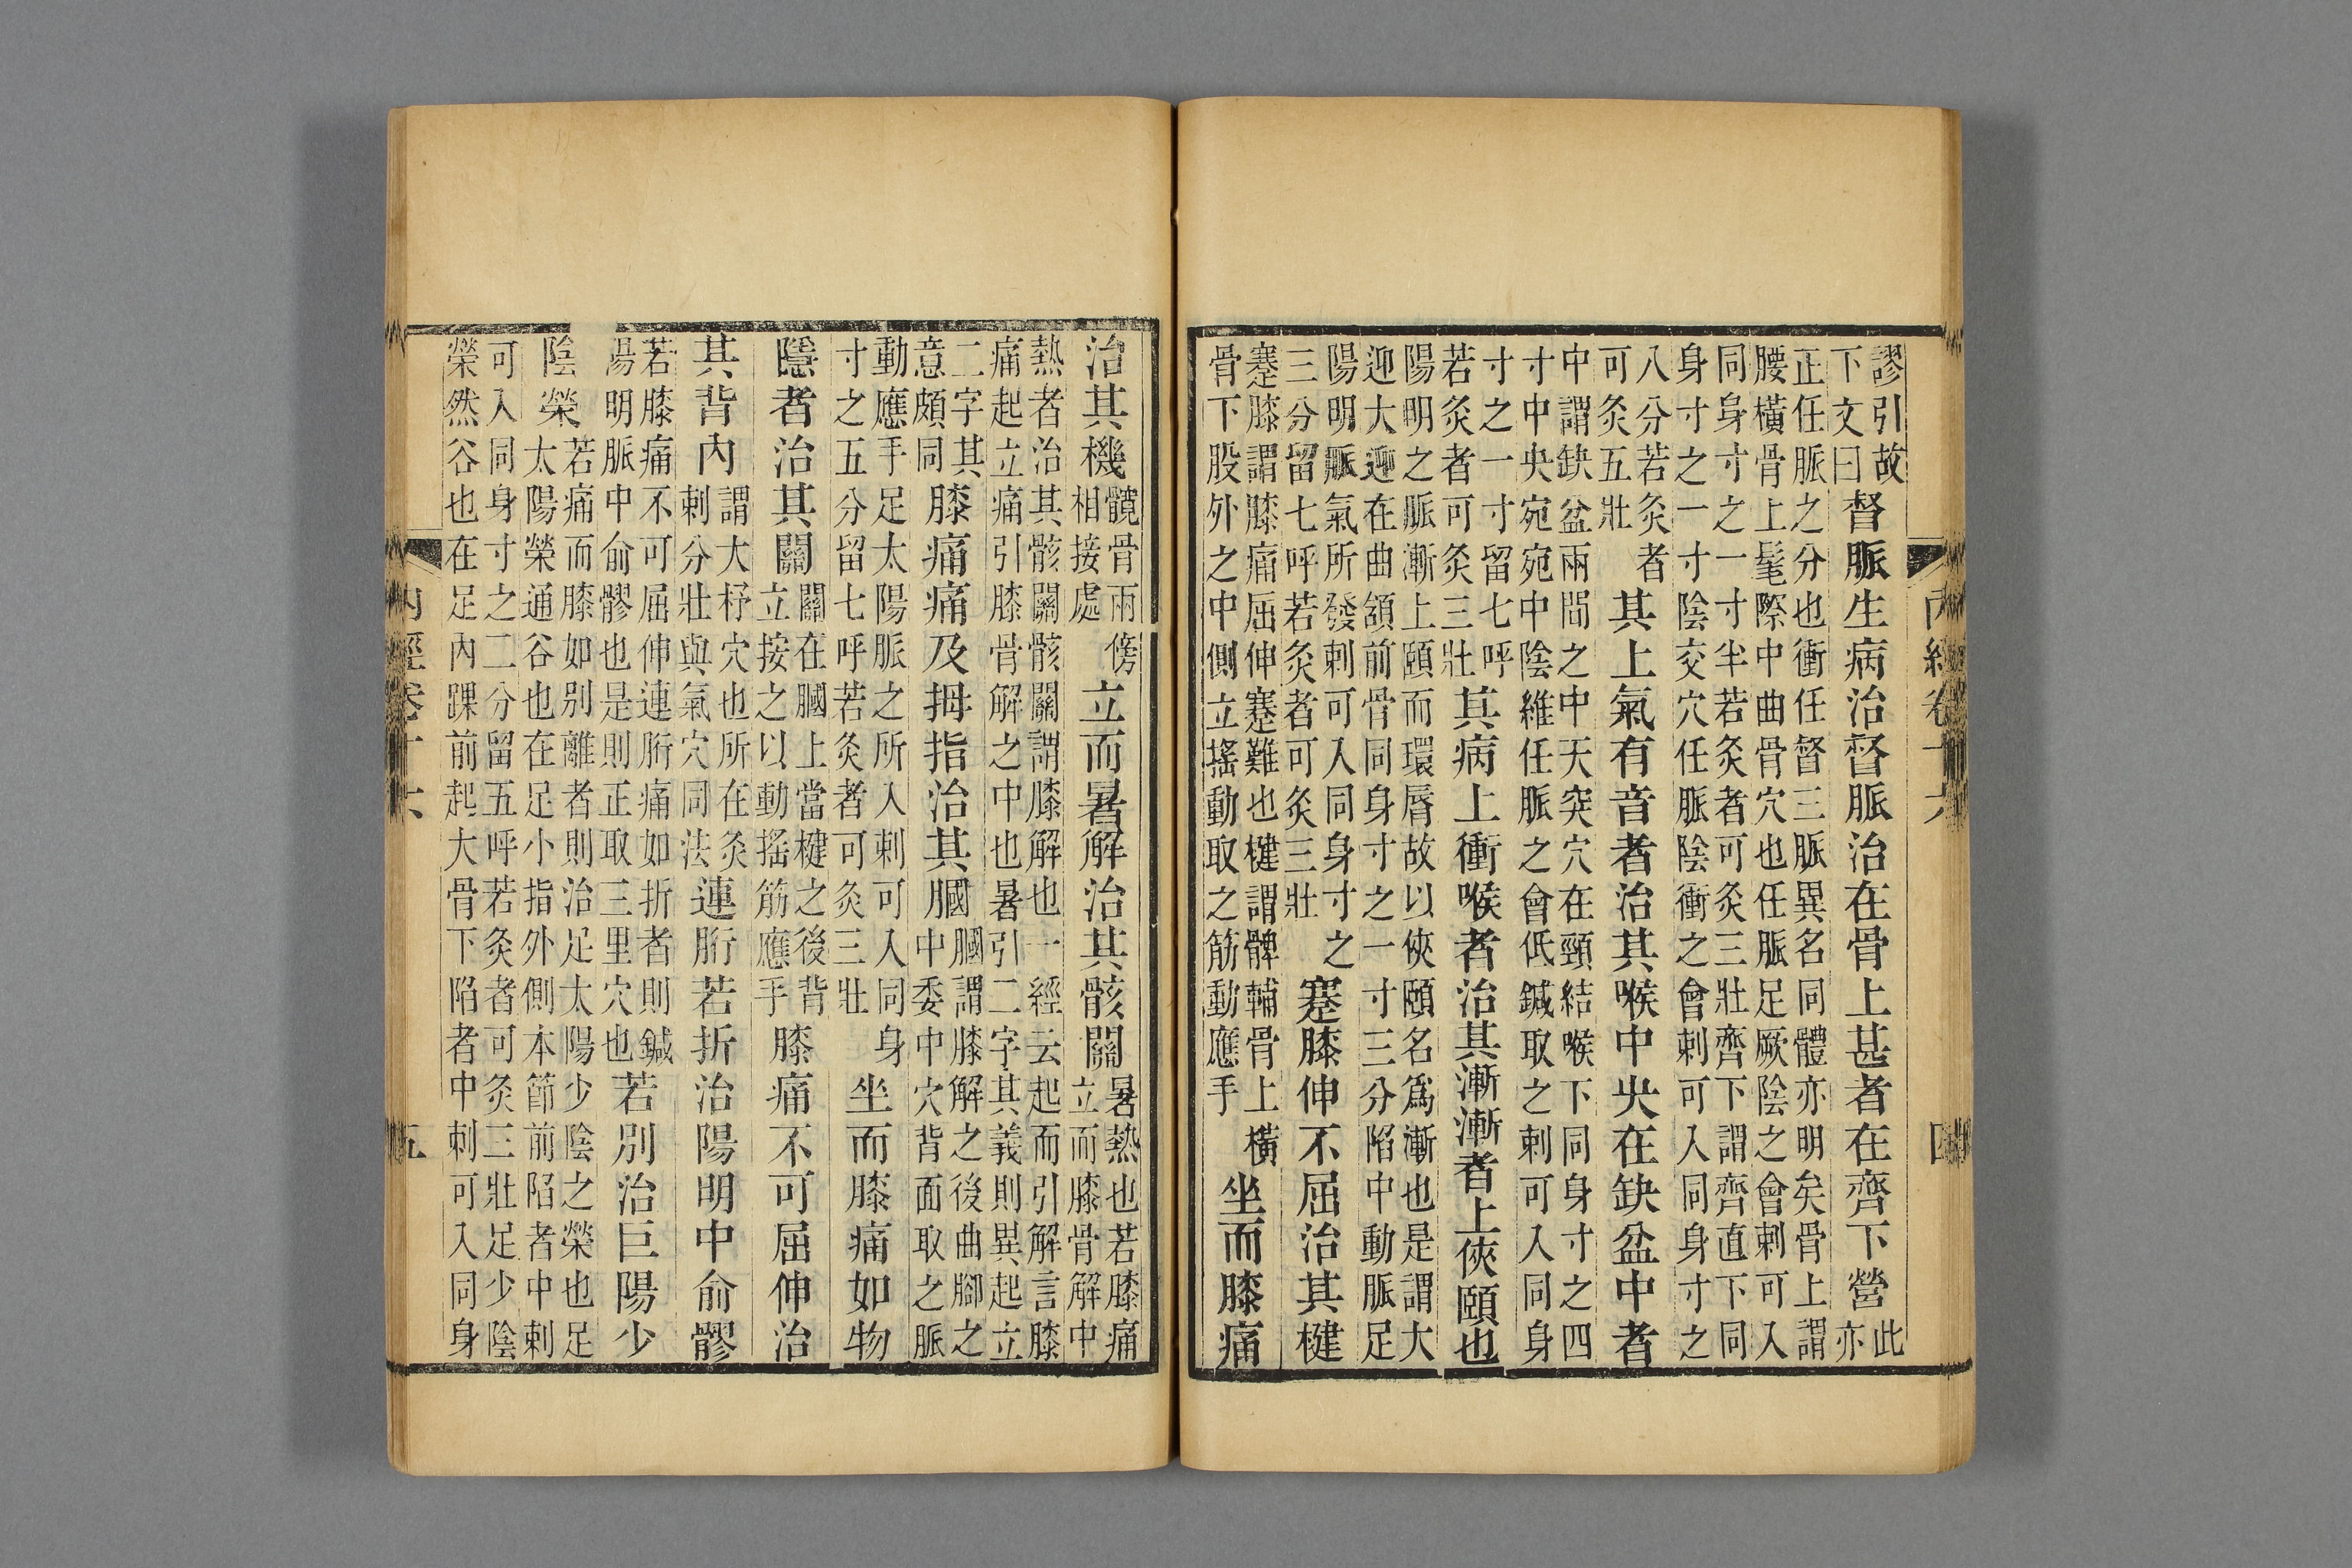 謬引故下文曰督脈生病治督脈治在骨上甚者在齊下營此亦
正任脈之分也衝任督三脈異名同體亦明矣骨上謂
腰橫骨上髦際中曲骨穴也任脈足厥陰之會刺可入
同身寸之一寸半若灸者可灸三壯齊下謂齊直下同
身寸之一寸陰交穴任脈陰衝之會刺可入同身寸之
八分若灸者可灸五壯其上氣有音者治其喉中央在缺盆中者
中謂缺盆兩間之中天突穴在頸結喉下同身寸之四
寸中央宛宛中陰維任脈之會低鍼取之刺可入同身
寸之一寸留七呼若灸者可灸三壯其病上衝喉者治其漸漸者上俠頤也
陽明之脈漸上頤而環脣故以俠頤名爲漸也是謂大
迎大迎在曲頷前骨同身寸之一寸三分陷中動脈足
陽明脈氣所發刺可入同身寸之三分留七呼若灸者可灸三壯蹇膝伸不屈治其楗
蹇膝謂膝痛屈伸蹇難也楗謂髀輔骨上橫骨下股外之中側立搖動取之筋動應手坐而膝痛
內經卷十六
四
治其機髖骨兩傍相接處立而暑解治其骸關暑熱也若膝痛立而膝骨解中
熱者治其骸關骸關謂膝解也一經云起而引解言膝
痛起立痛引膝骨解之中也暑引二字其義則異起立
二字其意頗同膝痛痛及拇指治其膕膕謂膝解之後曲腳之中委中穴背面取之脈
動應手足太陽脈之所入刺可入同身寸之五分留七呼若灸者可灸三壯坐而膝痛如物
隱者治其關關在膕上當楗之後背立按之以動搖筋應手膝痛不可屈伸治
其背內謂大杼穴也所在灸刺分壯與氣穴同法連胻若折治陽明中俞髎
若膝痛不可屈伸連胻痛如折者則鍼陽明脈中俞髎也是則正取三里穴也若別治巨陽少
陰滎若痛而膝如別離者則治足太陽少陰之滎也足太陽滎通谷也在足小指外側本節前陷者中刺
可入同身寸之二分留五呼若灸者可灸三壯足少陰
滎然谷也在足內踝前起大骨下陷者中刺可入同身
內經卷十六
五